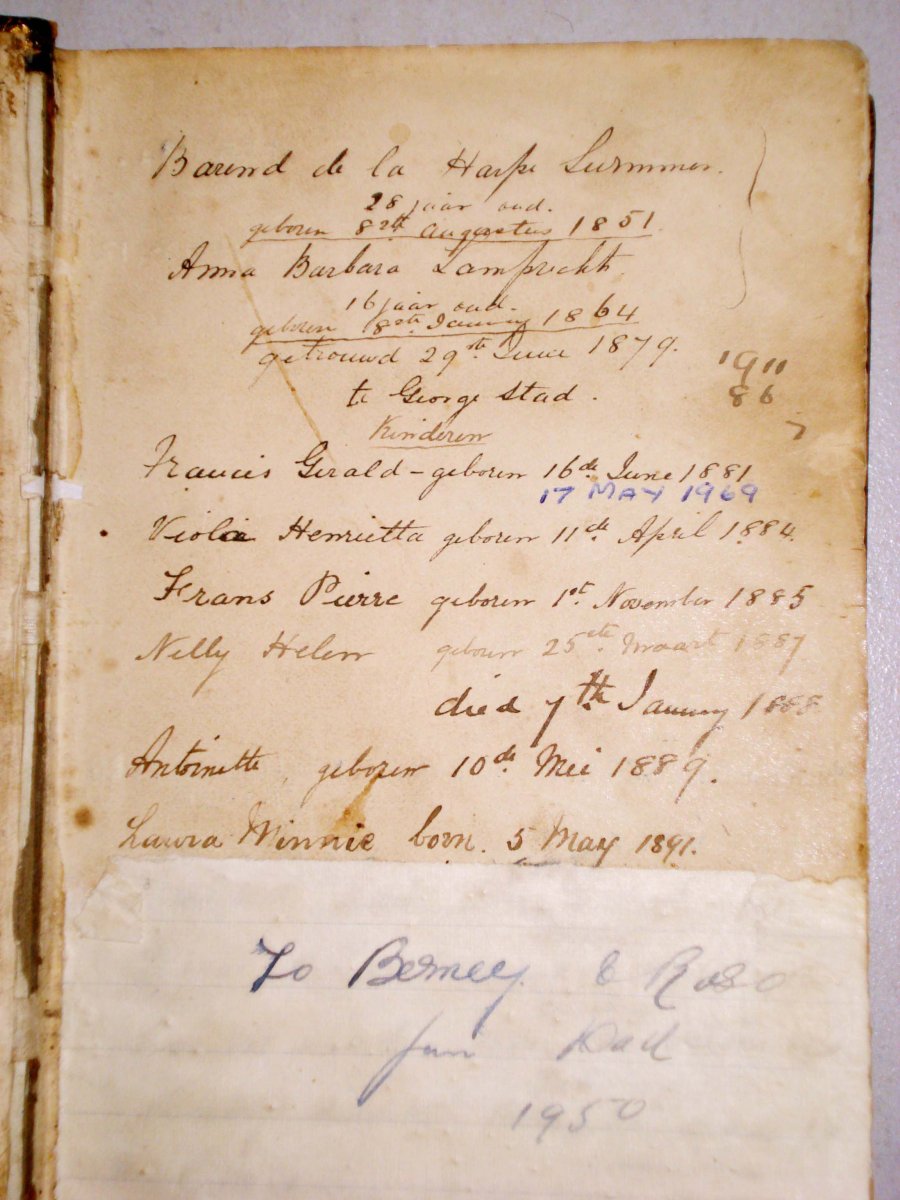 Barend de la Harpe
28 jaar oud.
geboren 8ste Augustus 1851
Anna Barbara Lamprecht
16 jaar oud.
geboren 8ste January 1864
getrouwd 29ste June 1879.
te George Stad.
1911
86
Kinderen
Francis Gerald - geboren 16de June 1881
17 MAY 1969
Viola Henrietta geboren 11de April 1884.
Frans Pierre geboren 1st November 1885
Nelly Helen geboren 25ste Maart 1887
died 7th January 1888
Antoinette, geboren 10de Mei 1889.
Laura Winnie born. 5 May 1891.
To & 
Dad
1950